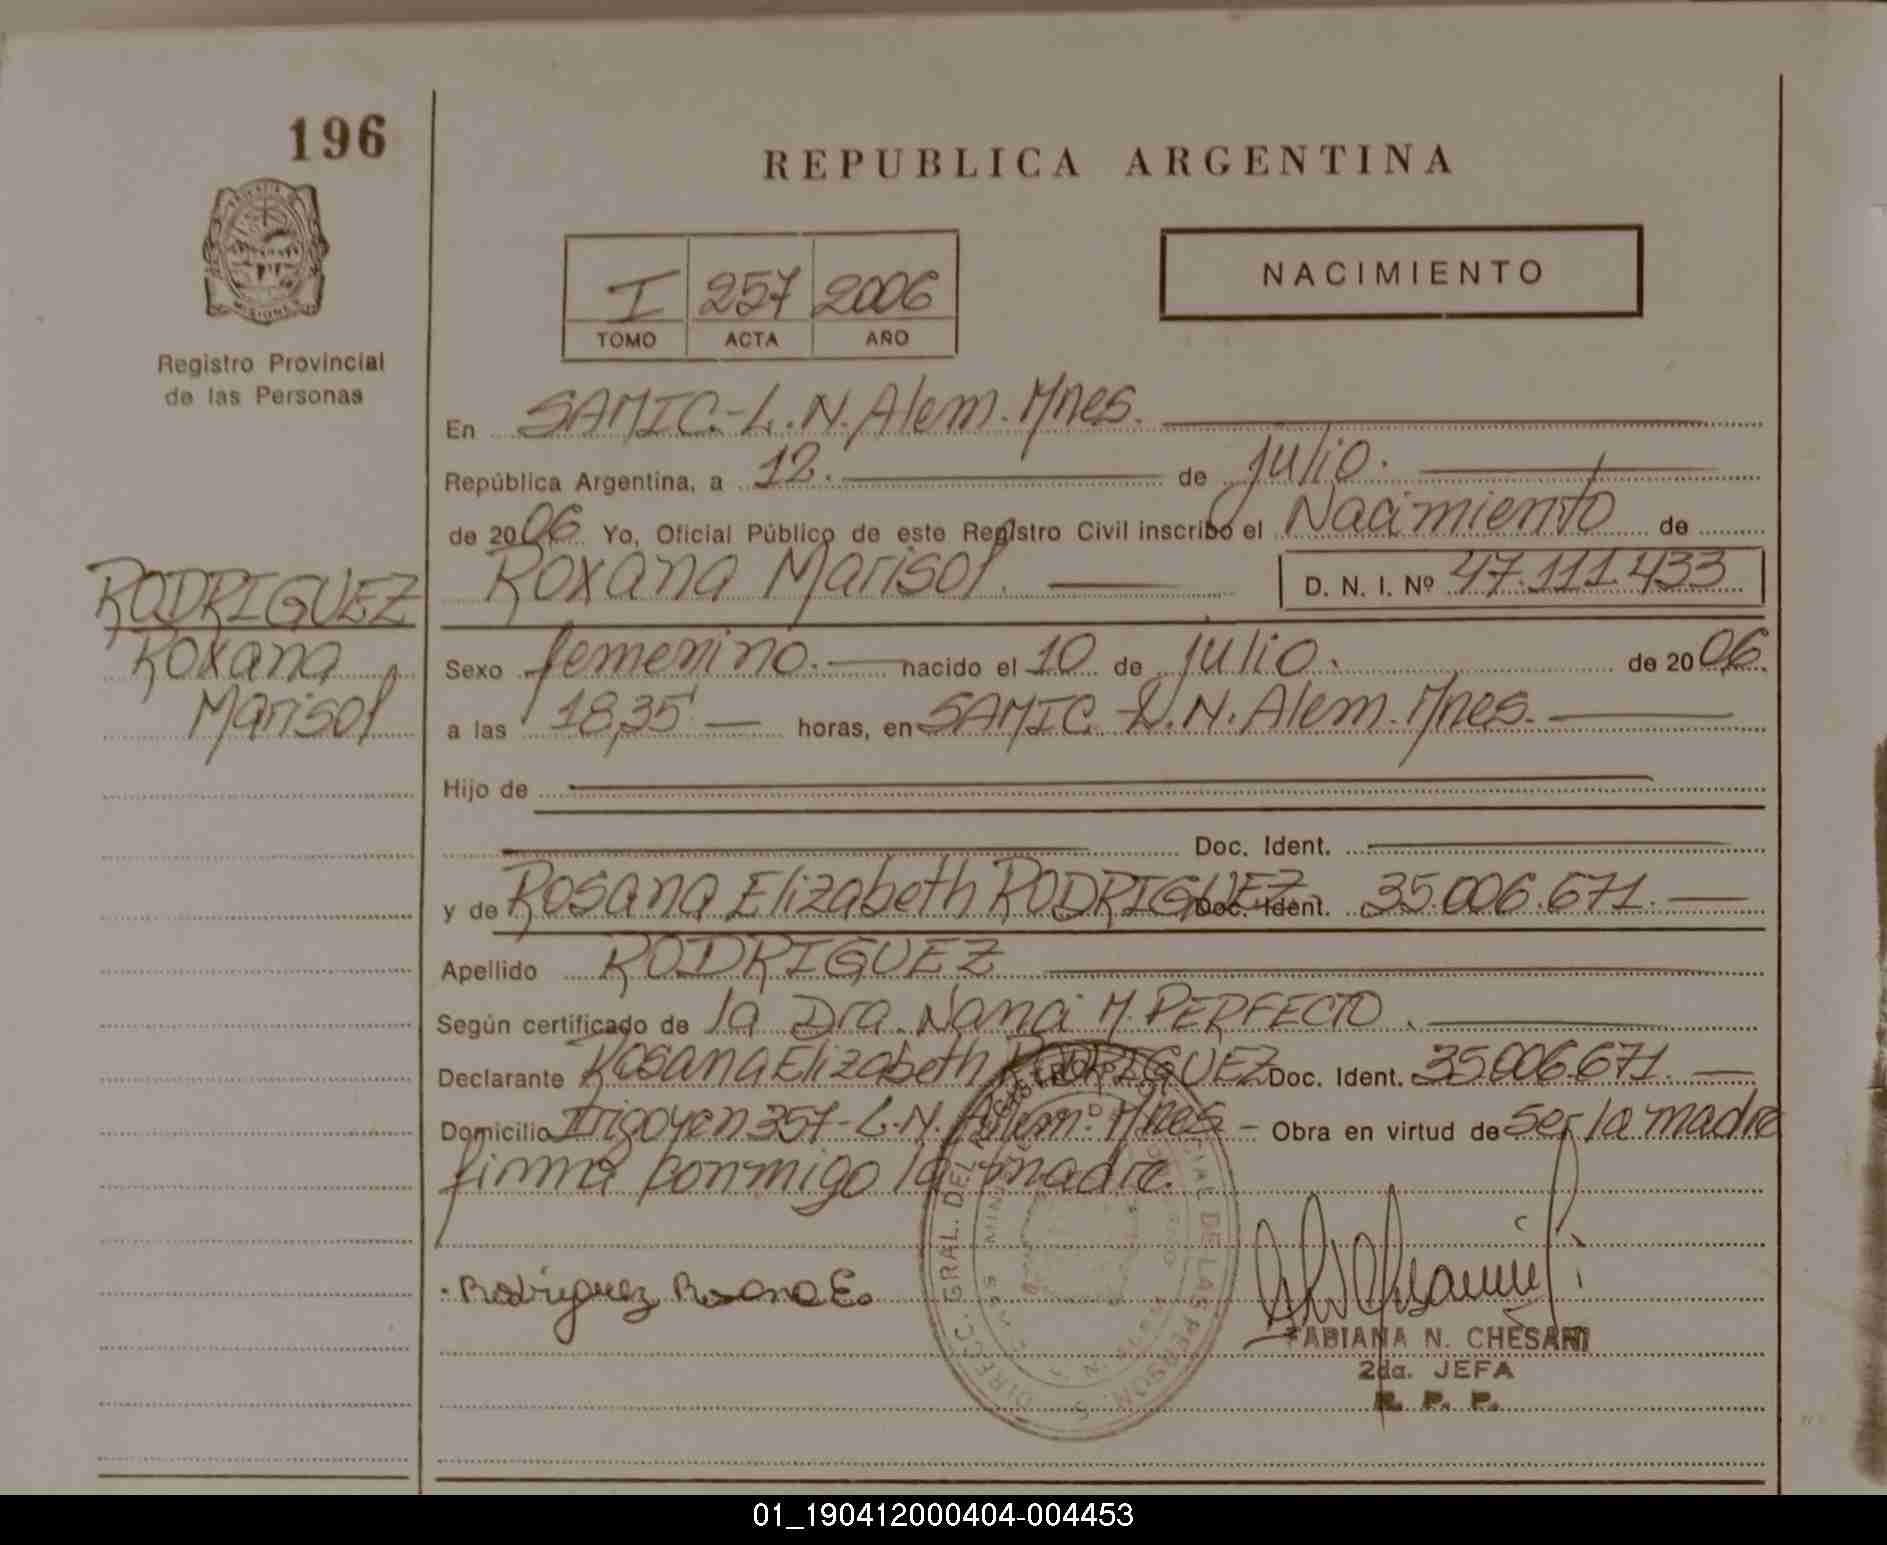 196
REPUBLICA ARGENTINA
NACIMIENTO
I 257 2006
TOMO ACTA AÑO
Registro Provincial
de las Personas
RODRIGUEZ
Roxana
Marisol
En SAMIC.-L.N.Alem.Mnes.
República Argentina, a 12. de julio.
de 2006 Yo, Oficial Público de este Registro Civil inscribo el Nacimiento de
Roxana Marisol. D. N. I. Nº 47.111.433
Sexo femenino. nacido el 10 de julio. de 2006.
a las 18,35 horas, en SAMIC L.N.Alem.Mnes.
Hijo de
Doc. Ident.
y de Rosana Elizabeth RODRIGUEZ Doc. Ident. 35.006.671.
Apellido RODRIGUEZ
Según certificado de la Dra. Nanci M. PERFECTO.
Declarante Rosana Elizabeth RODRIGUEZ Doc. Ident. 35.006.671.
Domicilio Irigoyen 357-L.N. Alem. Mnes - Obra en virtud de ser la madre
firma conmigo la madre.
Rodriguez Rosana E.
DIRECC. GRAL. DEL REGISTRO PROVINCIAL DE LAS PERSONAS
FABIANA N. CHESANI
2da. JEFA
R. P. P.
01_190412000404-004453